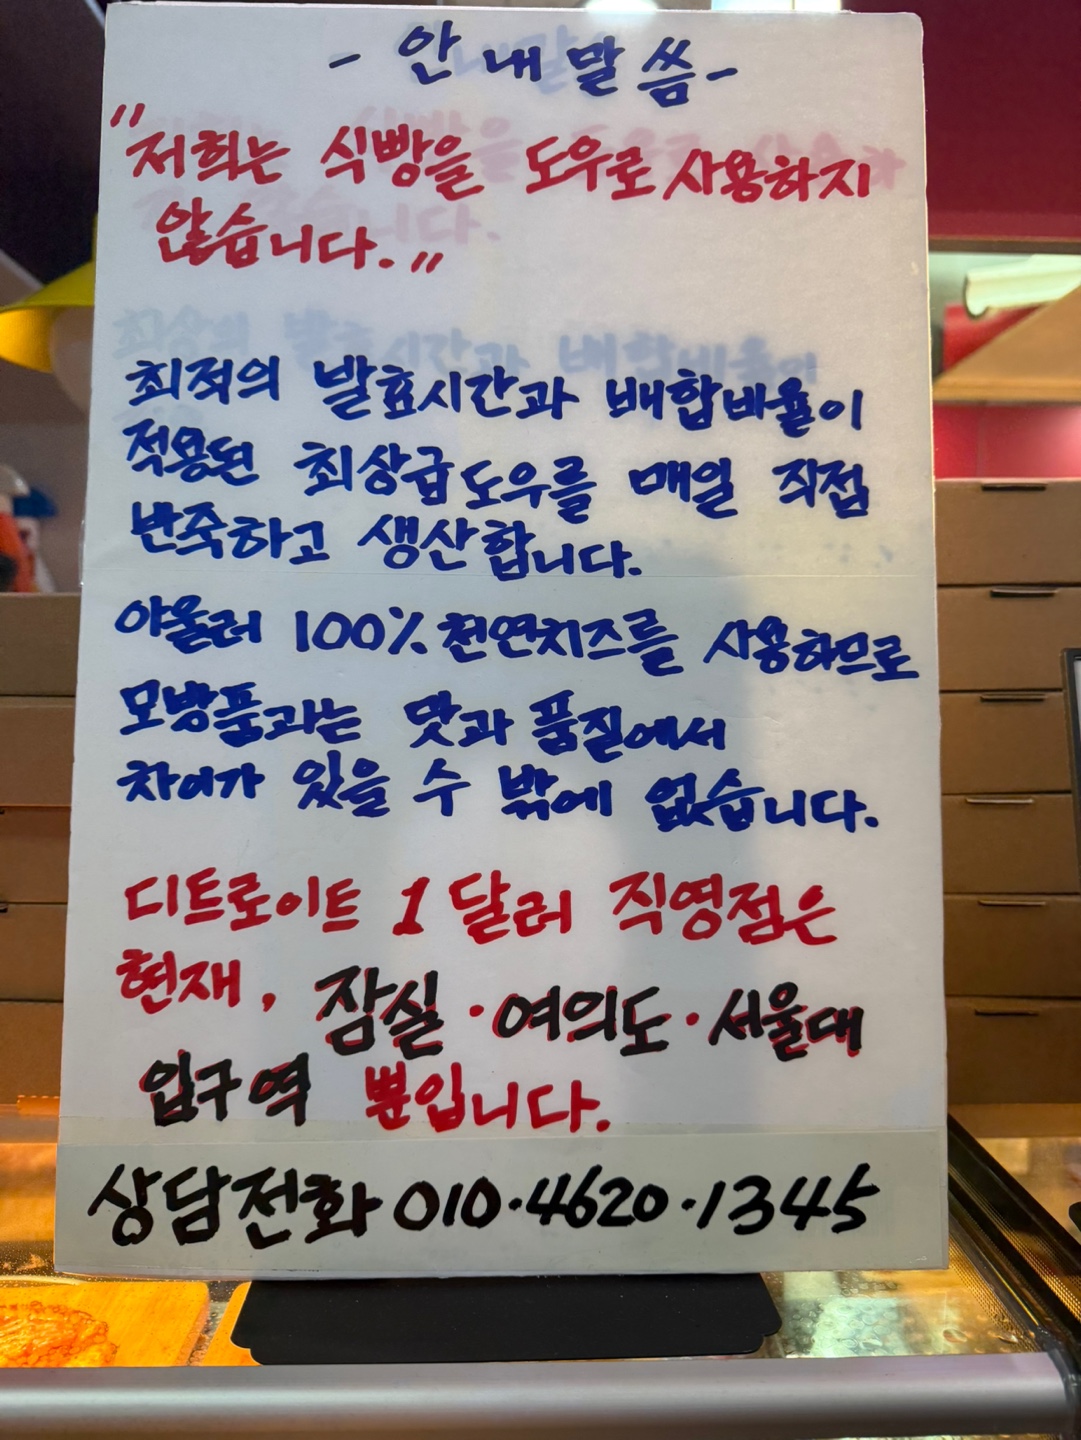 - 안내말씀 -
"저희는 식빵을 도우로 사용하지
않습니다."
최적의 발효시간과 배합비율이
적용된 최상급도우를 매일 직접
반죽하고 생산합니다.
아울러 100% 천연치즈를 사용하므로
모방품과는 맛과 품질에서
차이가 있을 수 밖에 없습니다.
디트로이트 1달러 직영점은
현재, 잠실·여의도·서울대
입구역 뿐입니다.
상담전화 010·4620·1345